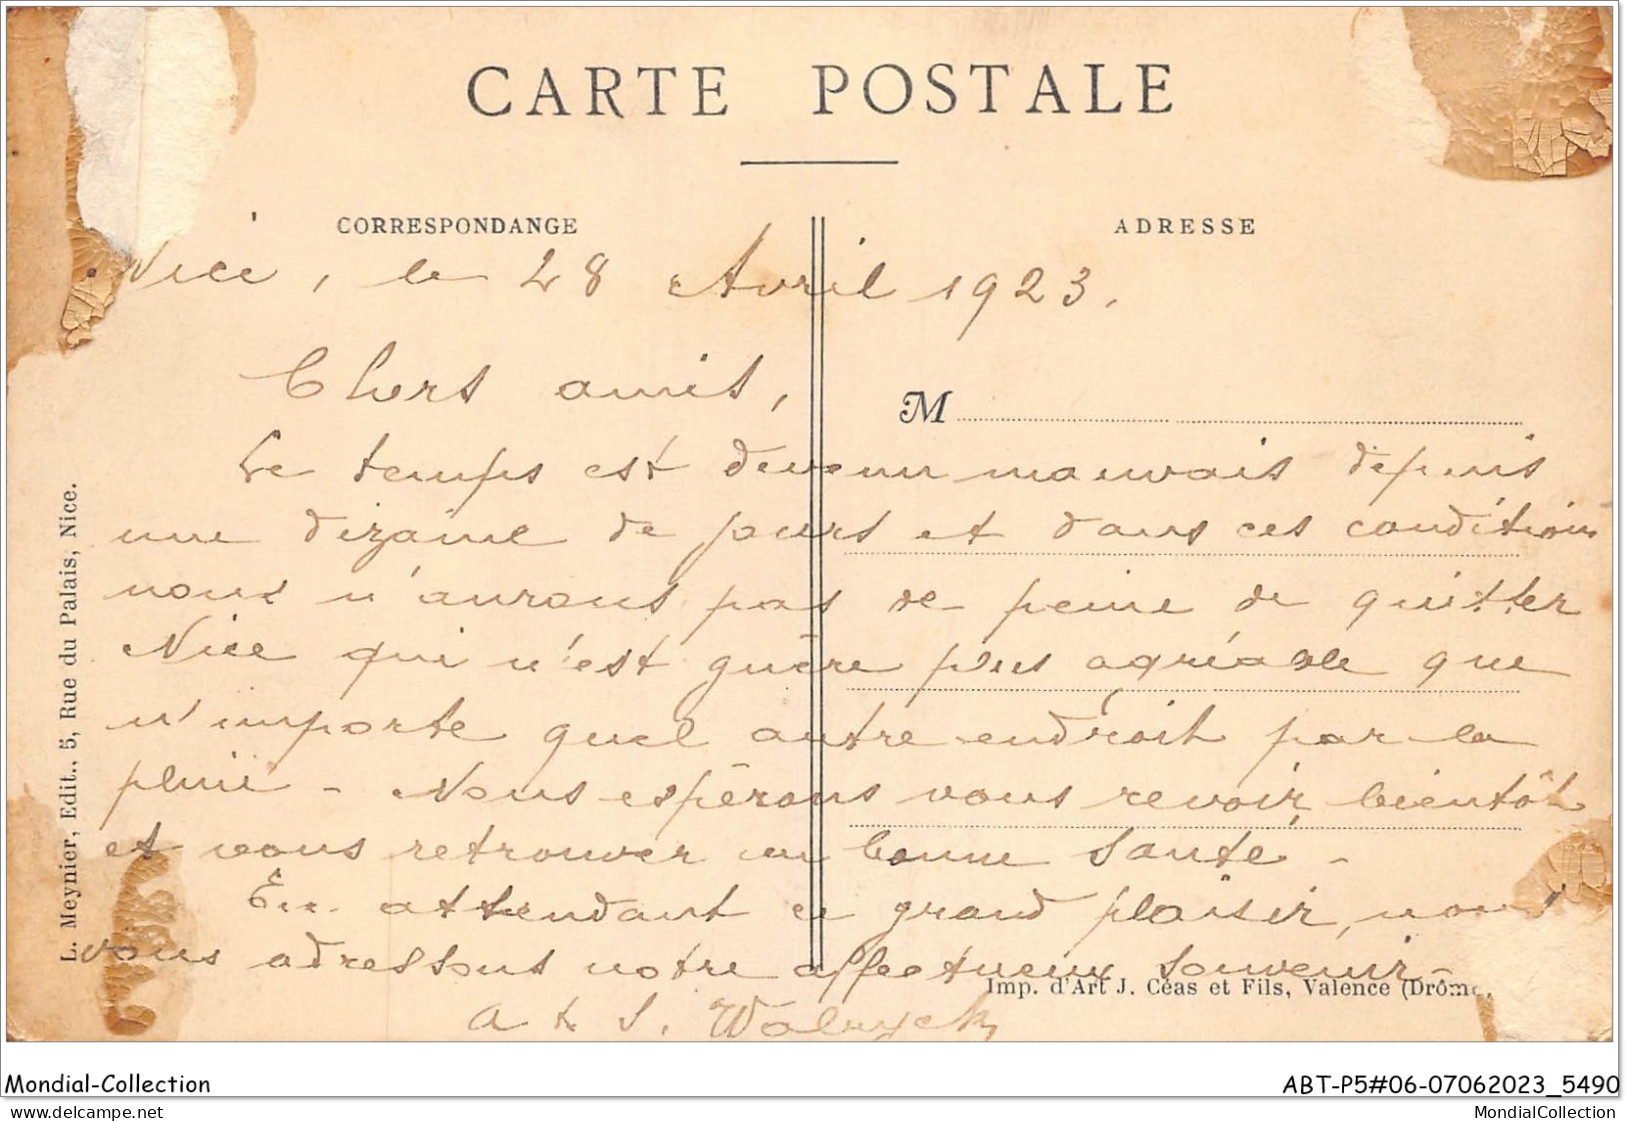 CARTE POSTALE
CORRESPONDANCE
ADRESSE
Nice, le 28 Avril 1923.
Chers amis,
M
Le temps est devenu mauvais depuis
une dizaine de jours et dans ces conditions
nous n'aurons pas de peine de quitter
Nice qui n'est guère plus agréable que
n'importe quel autre endroit par la
pluie - Nous espérons vous revoir bientôt
et vous retrouver en bonne santé -
En attendant ce grand plaisir, nous
vous adressons notre affectueux souvenir
A & S.
L. Meynier, Edit., 5, Rue du Palais, Nice.
Imp. d'Art J. Céas et Fils, Valence (Drôme,
Mondial-Collection
ABT-P5#06-07062023_5490
www.delcampe.net
MondialCollection